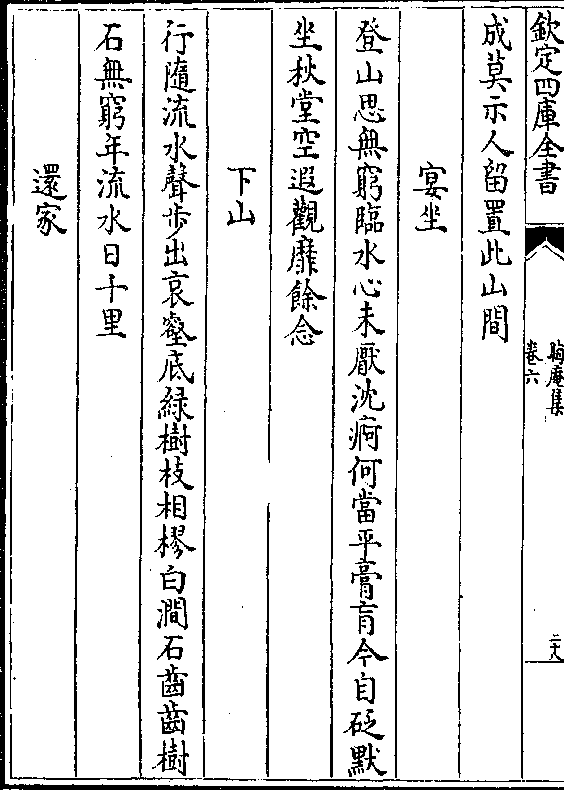 欽定四庫全書
陶庵集
卷六
二十八
成莫示人留置此山間
宴坐
登山思無窮臨水心未厭沈痾何當平膏肓今自砭默
坐秋堂空遐觀靡餘念
下山
行隨流水聲步出哀壑底緑樹枝相樛白澗石齒齒樹
石無窮年流水日十里
還家